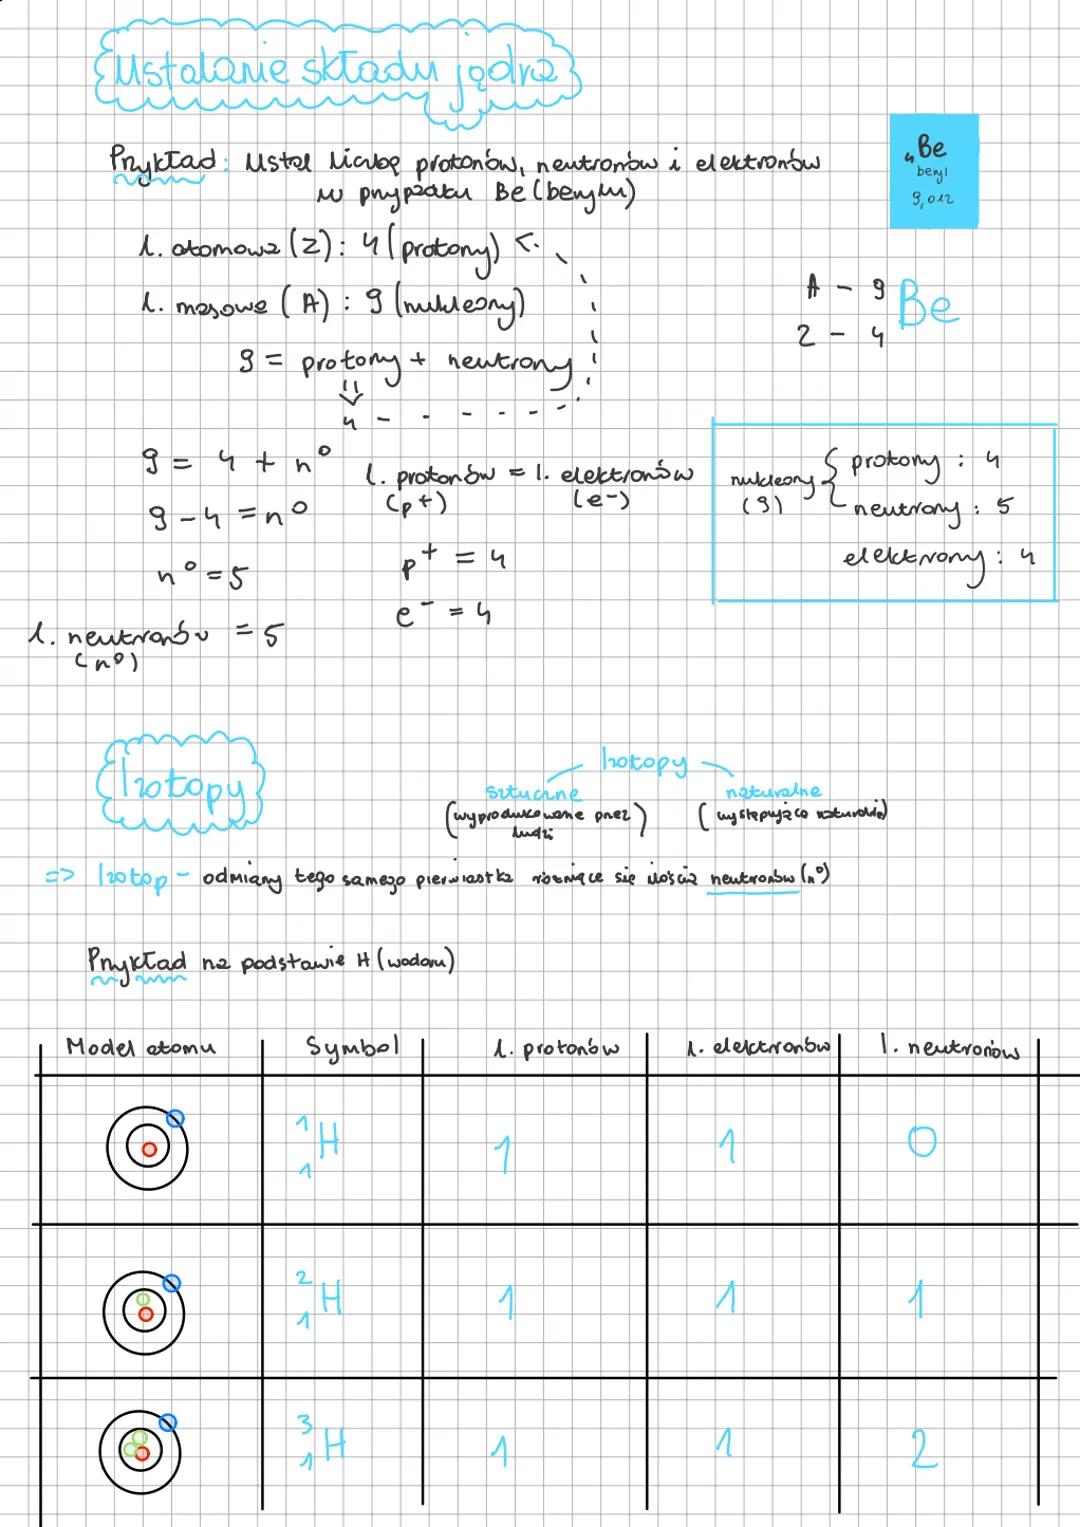 Ustalanie składu jądra
Przykład: Ustal liczbę protonów, neutronów i elektronów
w przypadku Be (berylu)
4Be
beryl
9,012
l. atomowa (Z): 4 (protony)
l. masowa (A): 9 (nukleony)
A - 9 Be
Z - 4
9 = protony + neutrony
4
9 = 4 + n⁰
9 - 4 = n⁰
n⁰ = 5
l. neutronów = 5
(n⁰)
l. protonów = l. elektronów
(p+) (e-)
p⁺ = 4
e⁻ = 4
nukleony { protony: 4
(9) neutrony: 5
elektrony: 4
Izotopy
Izotopy
sztuczne naturalne
(wyprodukowane przez ludzi) (występujące naturalnie)
=> Izotop - odmiany tego samego pierwiastka różniące się ilością neutronów (n⁰)
Przykład na podstawie H (wodoru)
Model atomu Symbol l. protonów l. elektronów l. neutronów
¹₁H 1 1 0
²₁H 1 1 1
³₁H 1 1 2